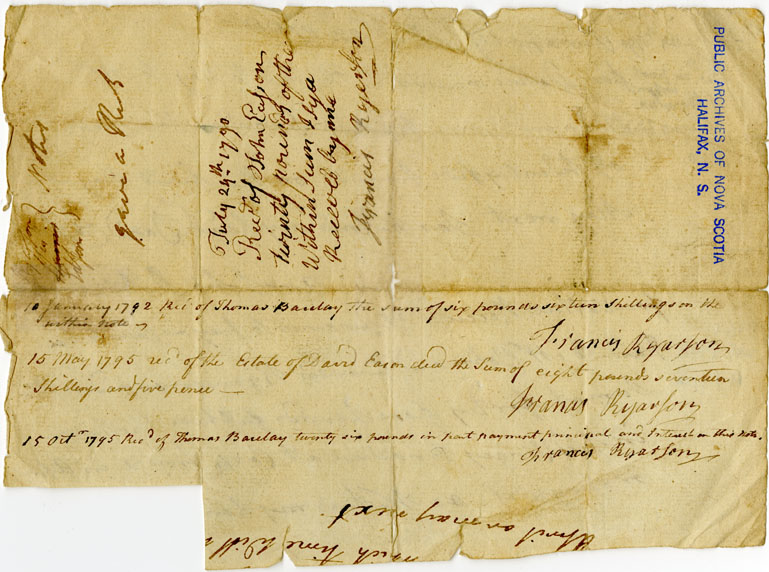 PUBLIC ARCHIVES OF NOVA SCOTIA
HALIFAX, N. S.
Notes
gave a Rect
July 29th 1790
Recd of John Easson
twenty pounds of the
Within Sum I Say
Received by me
Francis Ryerson
10 January 1792 Recd of Thomas Barclay the sum of six pounds sixteen Shillings on the
within note
Francis Ryarson
15 May 1795 recd of the Estate of David Eason decd the Sum of eight pounds seventeen
Shillings and five pence —
Francis Ryarson
15 Octr 1795 Recd of Thomas Barclay twenty six pounds in part payment principal and Interest on this Note.
Francis Ryarson